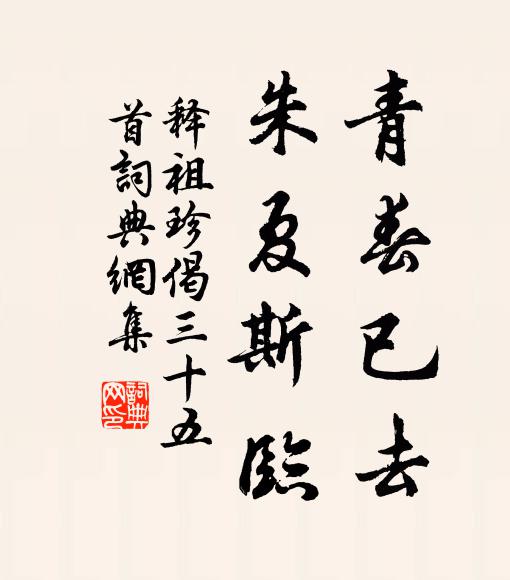 青春已去
朱夏斯臨
释祖珍偈三十五
首詞典網集
詞典網印